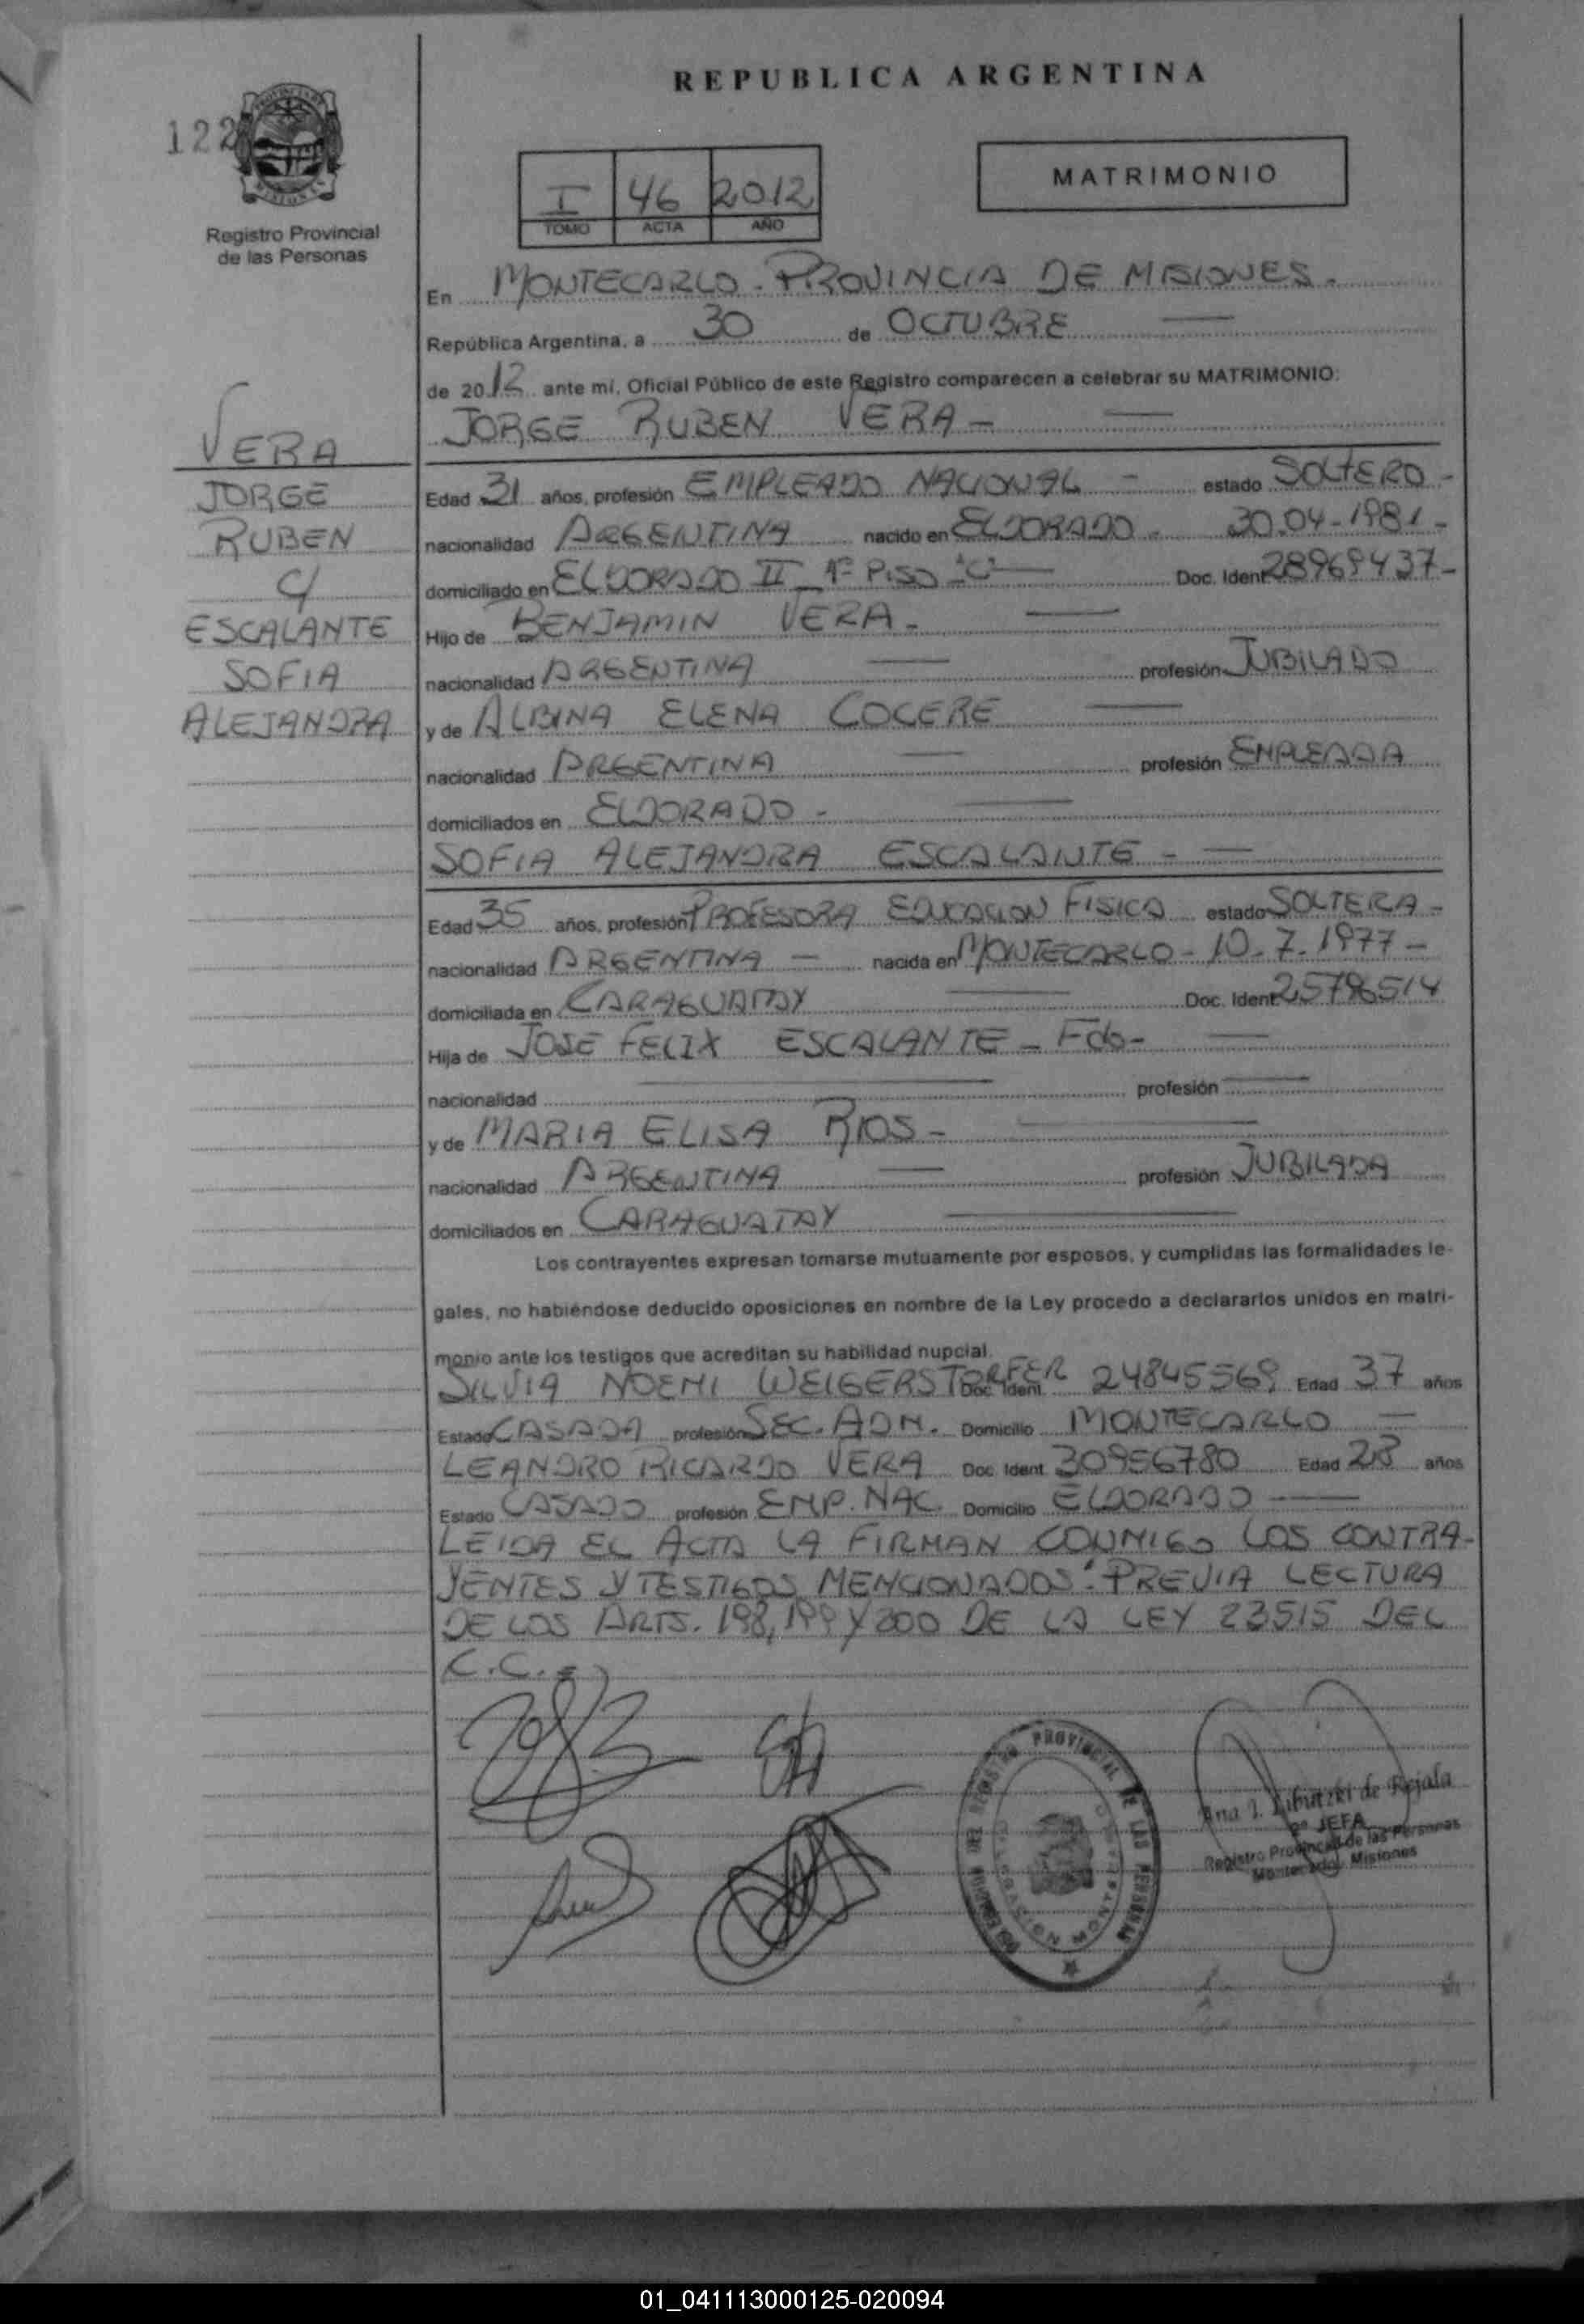 REPUBLICA ARGENTINA
122
Registro Provincial
de las Personas
I 46 2012
TOMO ACTA AÑO
MATRIMONIO
En MONTECARLO - PROVINCIA DE MISIONES.
República Argentina, a 30 de OCTUBRE
de 2012 ante mí, Oficial Público de este Registro comparecen a celebrar su MATRIMONIO:
JORGE RUBEN VERA -
VERA
JORGE
RUBEN
C/
ESCALANTE
SOFIA
ALEJANDRA
Edad 31 años, profesión EMPLEADO NACIONAL - estado SOLTERO -
nacionalidad ARGENTINA nacido en ELDORADO - 30.04-1981-
domiciliado en ELDORADO II 1º PISO "C" Doc. Ident 28969437-
Hijo de BENJAMIN VERA -
nacionalidad ARGENTINA profesión JUBILADO
y de ALBINA ELENA COCERE
nacionalidad ARGENTINA profesión EMPLEADA
domiciliados en ELDORADO -
SOFIA ALEJANDRA ESCALANTE -
Edad 35 años, profesión PROFESORA EDUCACION FISICA estado SOLTERA -
nacionalidad ARGENTINA - nacida en MONTECARLO - 10-7.1977-
domiciliada en CARAGUATAY Doc. Ident 25796514
Hija de JOSE FELIX ESCALANTE - Fdo-
nacionalidad profesión
y de MARIA ELISA RIOS -
nacionalidad ARGENTINA profesión JUBILADA
domiciliados en CARAGUATAY
Los contrayentes expresan tomarse mutuamente por esposos, y cumplidas las formalidades le-
gales, no habiéndose deducido oposiciones en nombre de la Ley procedo a declararlos unidos en matri-
monio ante los testigos que acreditan su habilidad nupcial.
SILVIA NOEMI WEIGERSTORFER Doc. Ident 24845569 Edad 37 años
Estado CASADA profesión SEC. ADM. Domicilio MONTECARLO
LEANDRO RICARDO VERA Doc. Ident. 30956780 Edad 28 años
Estado CASADO profesión EMP. NAC. Domicilio ELDORADO
LEIDA EL ACTA LA FIRMAN CONMIGO LOS CONTRA-
YENTES Y TESTIGOS MENCIONADOS. PREVIA LECTURA
DE LOS ARTS. 198, 199 Y 200 DE LA LEY 23515 DEL
C.C.
REGISTRO PROVINCIAL DE LAS PERSONAS
de Rejala
JEFA
Registro Provincial de las Personas
Montecarlo Misiones
01_041113000125-020094